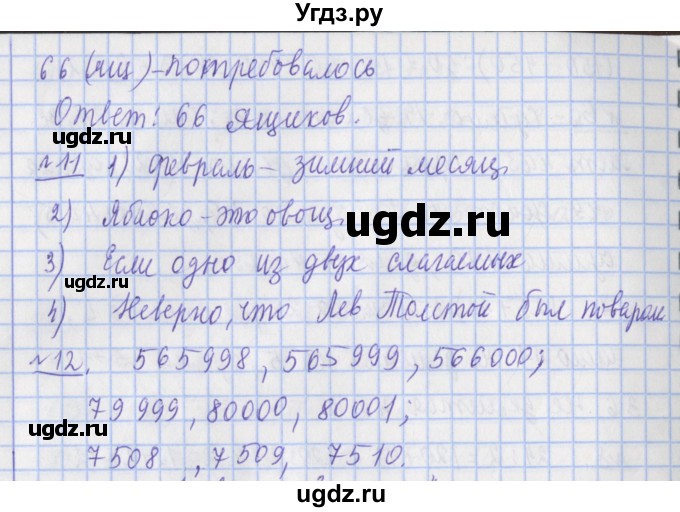 Угдз.ру
66 (ящ) – потребовалось
Ответ: 66 ящиков.
№11 1) февраль – зимний месяц
2) Яблоко – это овощ
3) Если одно из двух слагаемых
4) Неверно, что Лев Толстой был поваром
№12. 565998, 565999, 566000;
79999, 80000, 80001;
7508, 7509, 7510.
ugdz.ru
ugdz.ru
ugdz.ru
ugdz.ru
ugdz.ru
ugdz.ru